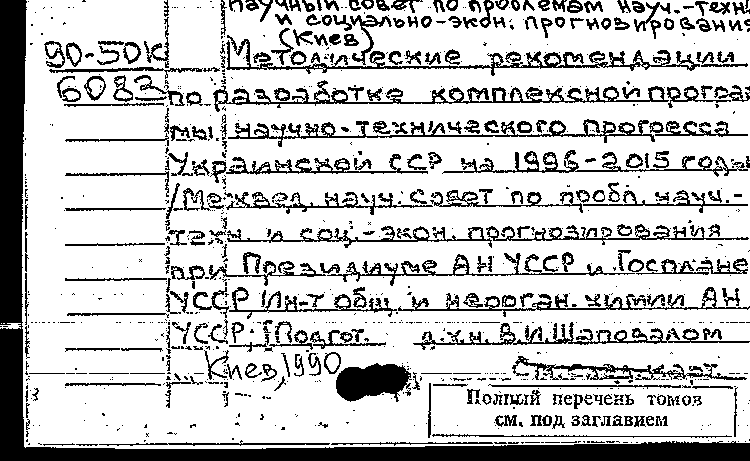 научный совет по проблемам науч.-техн.
и социально-экон. прогнозирования
(Киев)
90-50К Методические рекомендации
6083 по разработке комплексной програм
мы научно-технического прогресса
Украинской ССР на 1996-2015 годы
/Межвед. науч. совет по пробл. науч.-
техн. и соц.-экон. прогнозирования
при Президиуме АН УССР и Госплане
УССР, Ин-т общ. и неорган. химии АН
УССР; [Подгот. д.х.н. В.И.Шаповалом
... Киев, 1990
См. след. карт.
Полный перечень томов
см. под заглавием